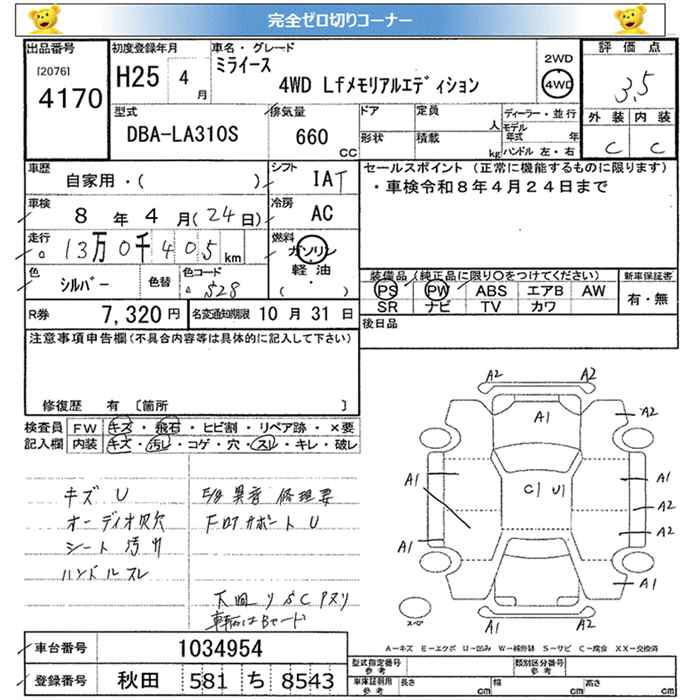 完全ゼロ切りコーナー
出品番号
[2076]
4170
初度登録年月
H25 4月
車名・グレード
ミライース
4WD Lfメモリアルエディション
2WD
4WD
評価点
3.5
外装 内装
C C
型式
DBA-LA310S
排気量
660 CC
ドア
形状
定員 人
積載 kg
ディーラー・並行
モデル年式 年
ハンドル 左・右
車歴
自家用・( )
シフト
IAT
車検
8年4月(24日)
冷房
AC
走行
13万0千405km
燃料
ガソリン
軽油
( )
色
シルバー
色替
色コード
S28
セールスポイント (正常に機能するものに限ります)
・車検令和8年4月24日まで
装備品 (純正品に限り〇をつけてください)
PS PW ABS エアB AW
SR ナビ TV カワ
新車保証書
有・無
R券 7,320円
名変通知期限 10月31日
後日品
注意事項申告欄(不具合内容等は具体的に記入して下さい)
修復歴 有 [箇所 ]
検査員記入欄
FW キズ・飛石・ヒビ割・リペア跡・×要
内装 キズ・汚レ・コゲ・穴・スレ・キレ・破レ
キズ U
オーディオ取穴
シート汚れ
ハンドルスレ
E/g異音 修理要
Fロアサポート U
下回り S C Pヌリ
車輌はBヤード
A2 A2
A1
A2
A1
A1
C1 U1
A2
A2
A1
A1
A2 A1
A-キズ E-エクボ U-凹み W-補修跡 S-サビ C-腐食 XX-交換済
車台番号
1034954
登録番号
秋田 581 ち 8543
型式指定番号 参考
類別区分番号 参考
車庫証明用 参考
長さ cm
幅 cm
高さ cm